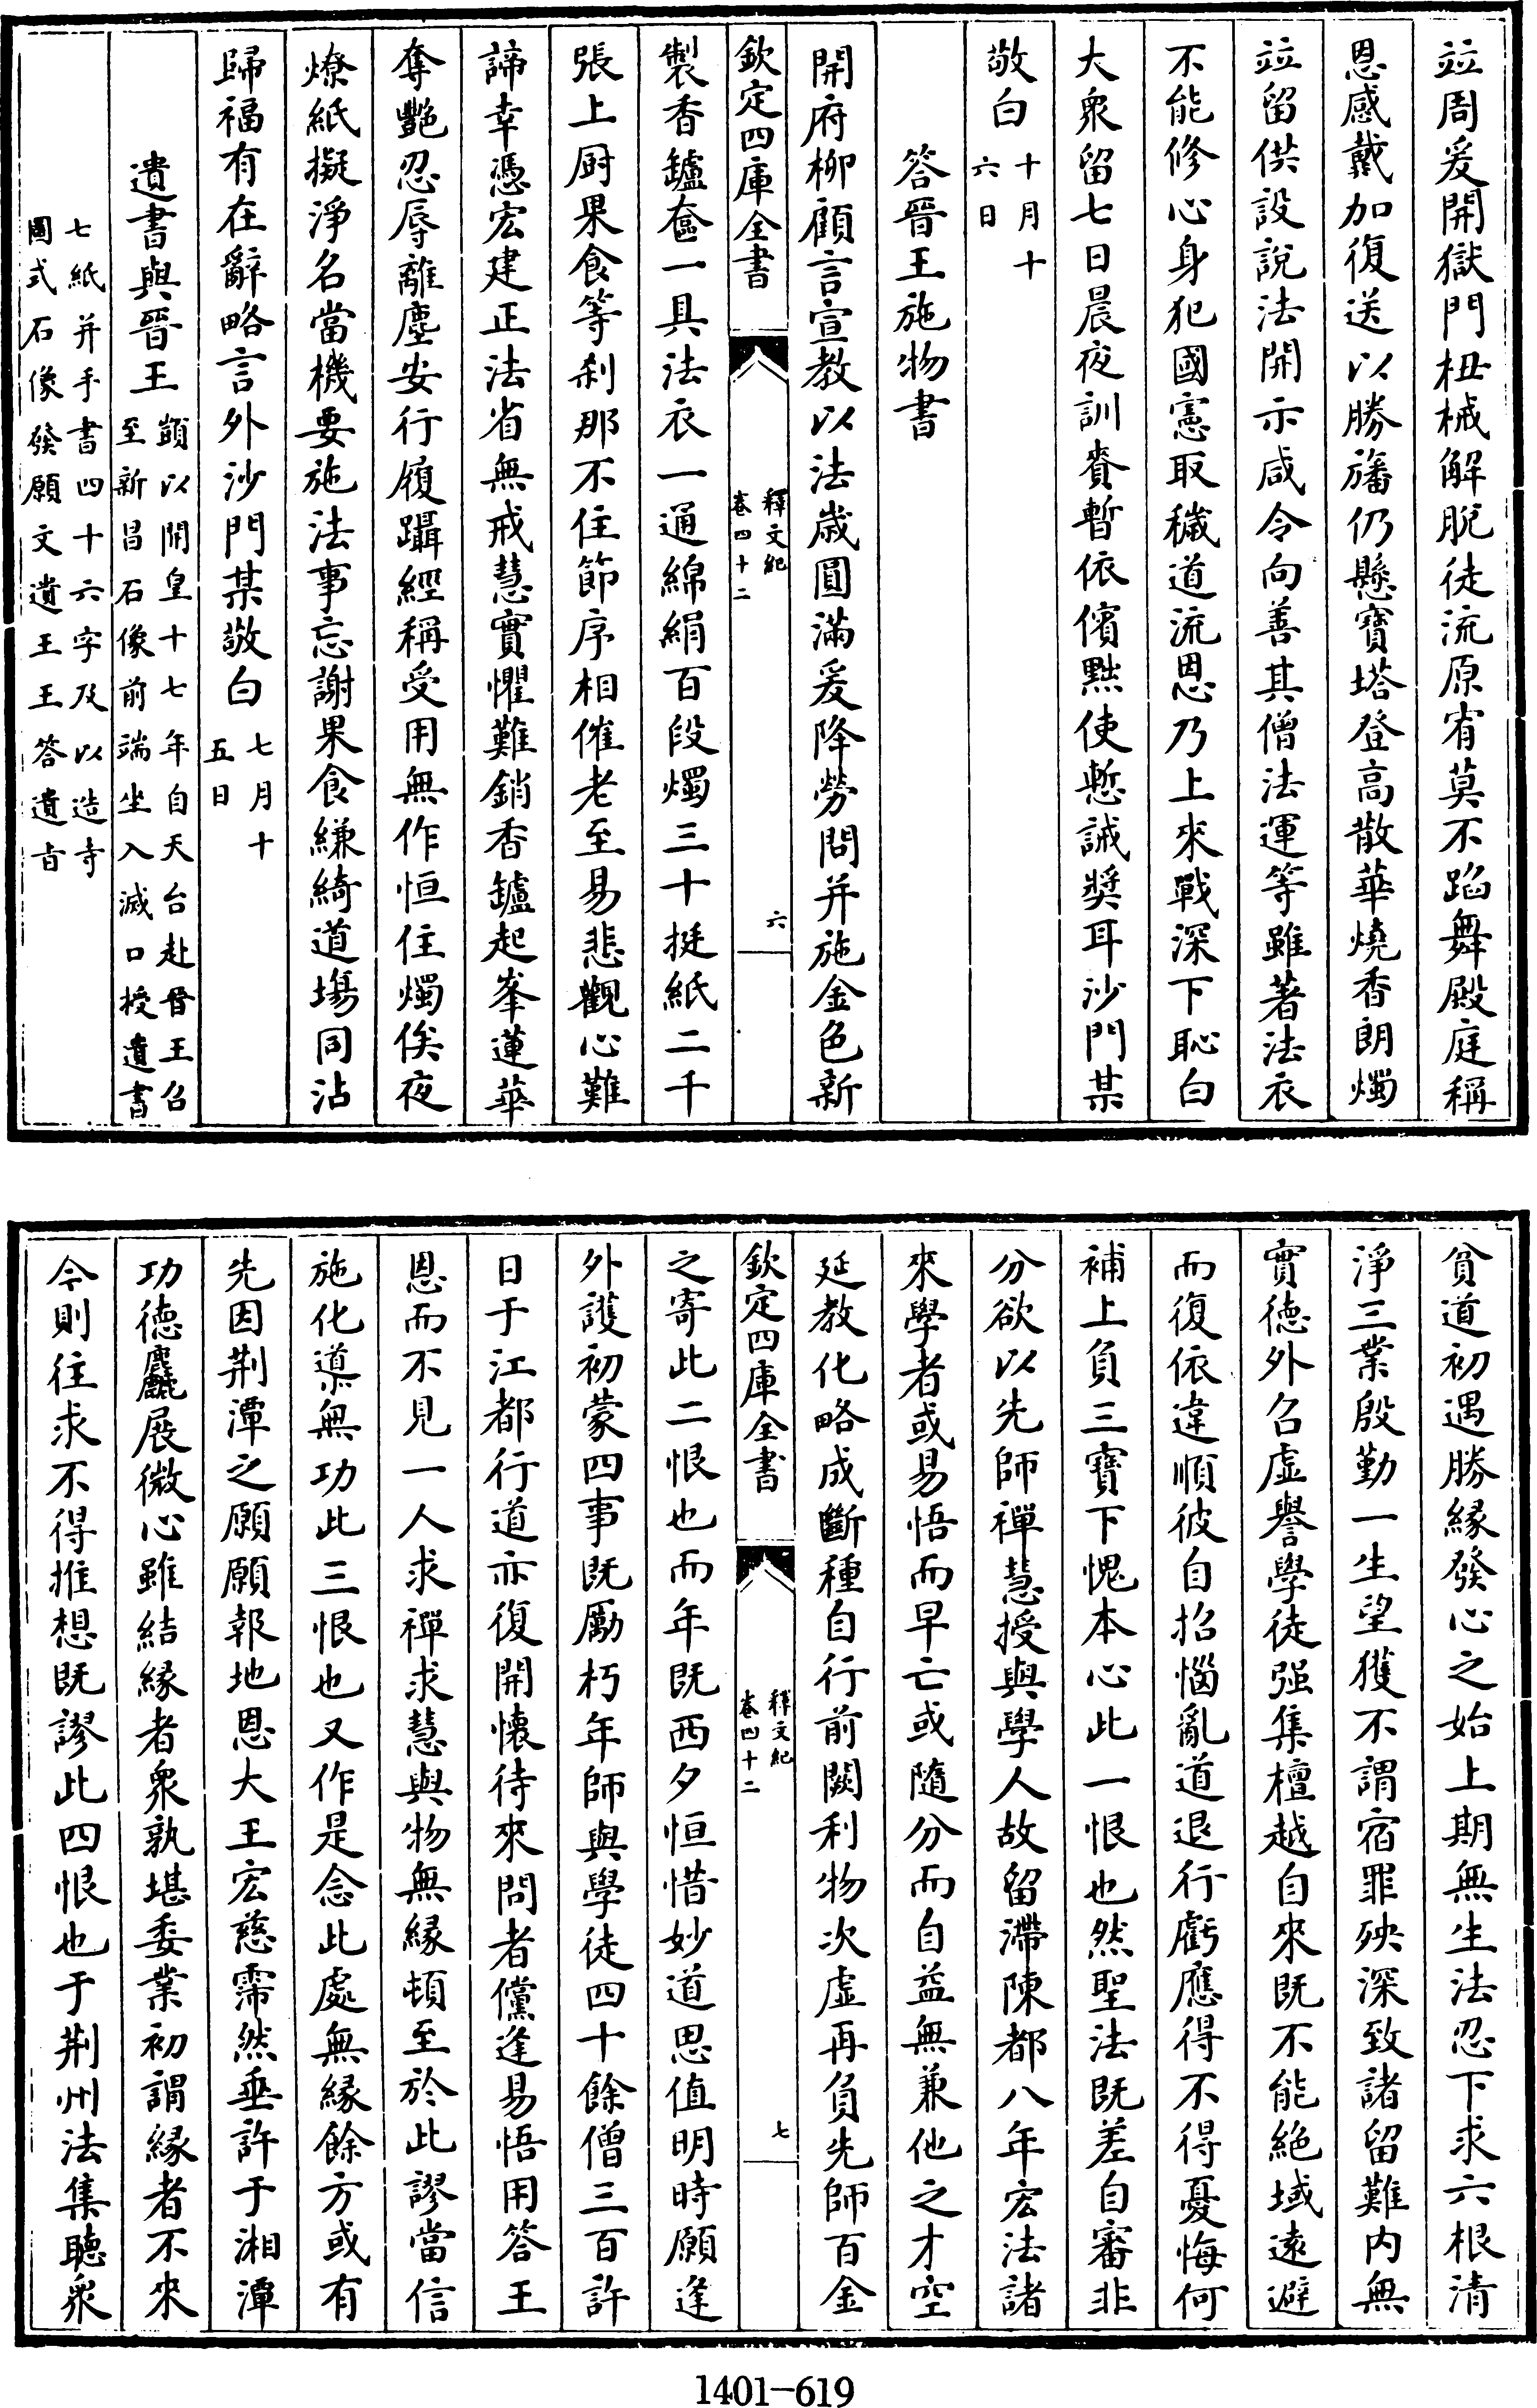 竝周爰開獄門杻械解脫徒流原宥莫不蹈舞殿庭稱
恩感戴加復送以勝旛仍懸寶塔登高散華燒香朗燭
竝留供設說法開示咸令向善其僧法運等雖著法衣
不能修心身犯國憲取穢道流恩乃上來戰深下恥白
大衆留七日晨夜訓賚暫依儐黜使慙誡獎耳沙門某
敬白十月十
六日
答晉王施物書
開府柳顧言宣教以法歲圓滿爰降勞問并施金色新
欽定四庫全書
釋文紀
卷四十二
六
製香鑪奩一具法衣一通綿絹百段燭三十挺紙二千
張上厨果食等刹那不住節序相催老至易悲觀心難
諦幸憑宏建正法省無戒慧實懼難銷香鑪起峯蓮華
奪艷忍辱離塵安行履躡經稱受用無作恒住燭俟夜
燎紙擬淨名當機要施法事忘謝果食縑綺道場同沾
歸福有在辭略言外沙門某敬白七月十
五日
遺書與晉王顗以開皇十七年自天台赴晉王召
至新昌石像前端坐入滅口授遺書
七紙并手書四十六字及以造寺
圖式石像發願文遺王王答遺旨
貧道初遇勝緣發心之始上期無生法忍下求六根清
淨三業殷勤一生望獲不謂宿罪殃深致諸留難內無
實德外召虛譽學徒强集檀越自來既不能絶域遠避
而復依違順彼自招惱亂道退行虧應得不得憂悔何
補上負三寶下愧本心此一恨也然聖法既差自審非
分欲以先師禪慧授與學人故留滯陳都八年宏法諸
來學者或易悟而早亡或隨分而自益無兼他之才空
延教化略成斷種自行前闕利物次虛再負先師百金
欽定四庫全書
釋文紀
卷四十二
七
之寄此二恨也而年既西夕恒惜妙道思值明時願逢
外護初蒙四事既勵朽年師與學徒四十餘僧三百許
日于江都行道亦復開懷待來問者儻逢易悟用答王
恩而不見一人求禪求慧與物無緣頓至於此謬當信
施化導無功此三恨也又作是念此處無緣餘方或有
先因荆潭之願願報地恩大王宏慈霈然垂許于湘潭
功德麤展微心雖結緣者衆孰堪委業初謂緣者不來
今則往求不得推想既謬此四恨也于荆州法集聽衆
1401-619